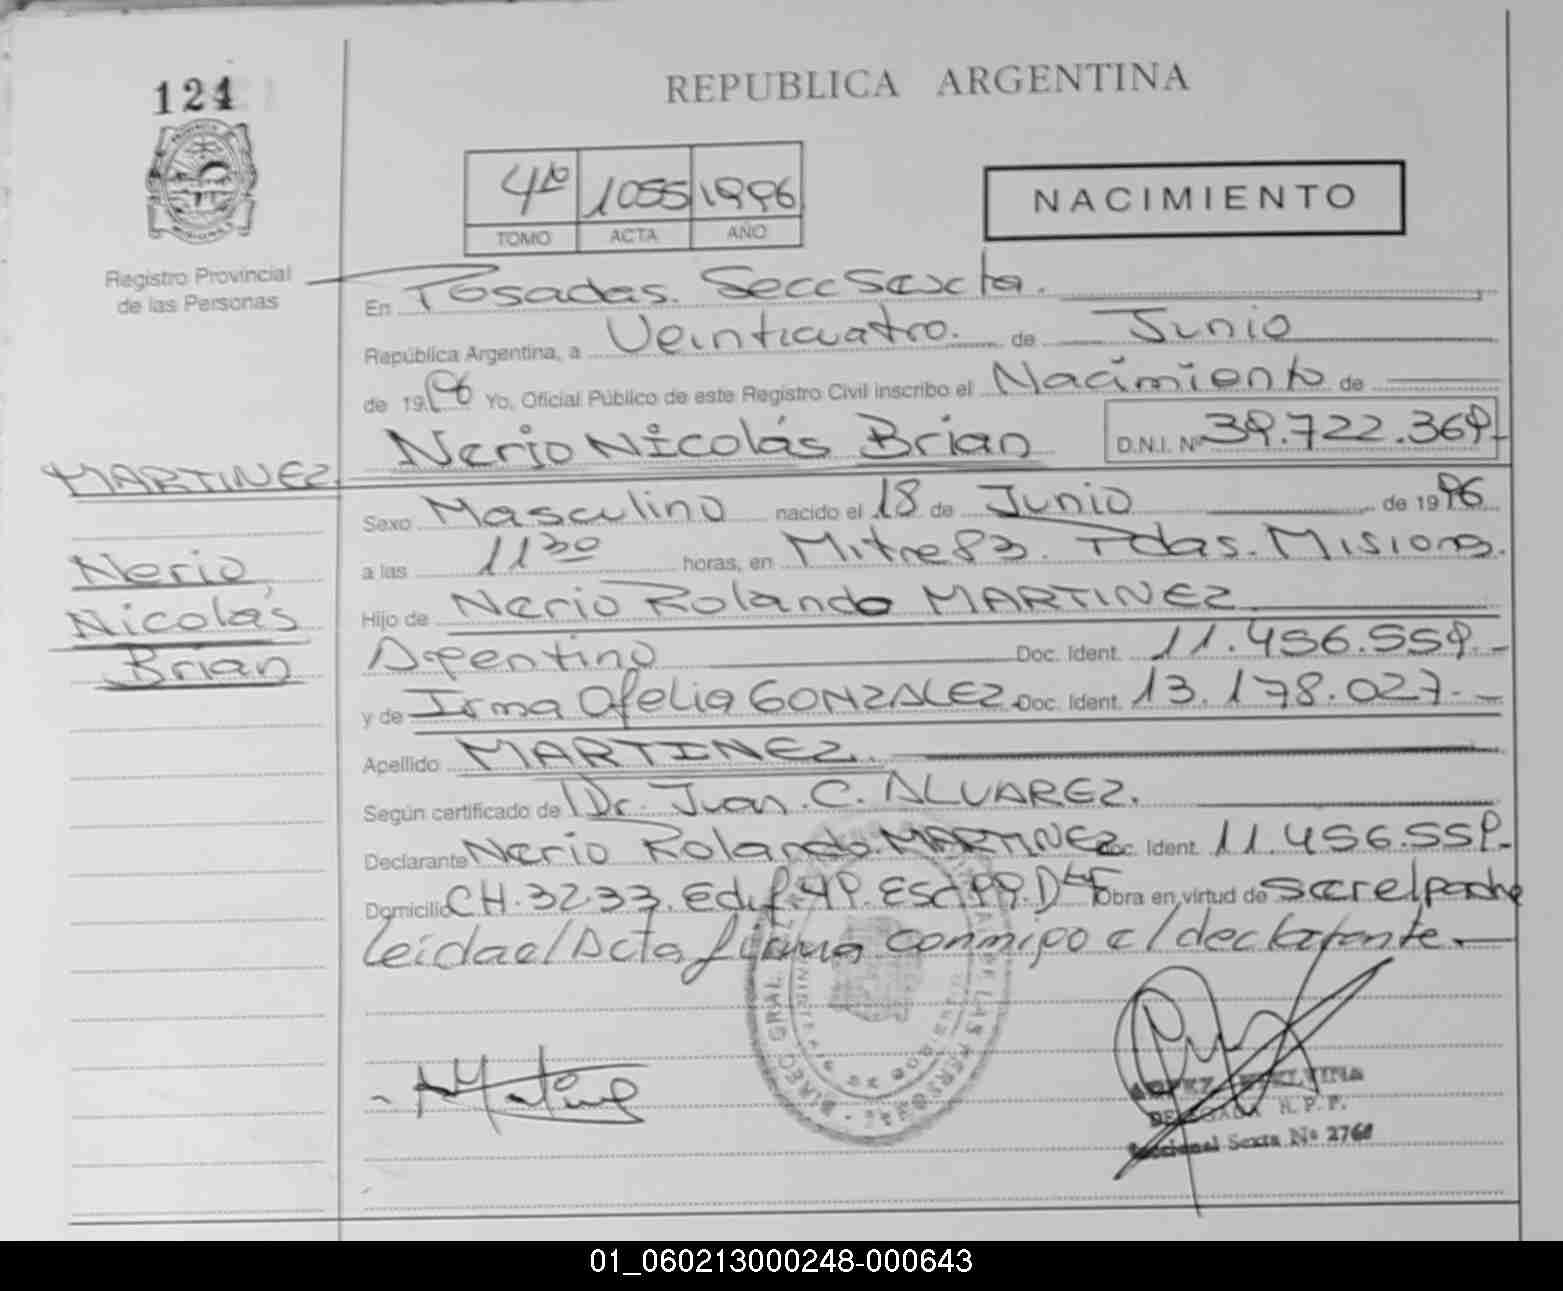 124
REPUBLICA ARGENTINA
4to 1055 1996
TOMO ACTA AÑO
NACIMIENTO
Registro Provincial
de las Personas
En Posadas. Secc Sexta.
República Argentina, a Veinticuatro. de Junio
de 1996 Yo, Oficial Público de este Registro Civil inscribo el Nacimiento de
Nerio Nicolás Brian D.N.I. Nº 39.722.369-
MARTINEZ
Nerio
Nicolás
Brian
Sexo Masculino nacido el 18 de Junio de 1996
a las 11 30 horas, en Mitre 83. Pdas. Misiones.
Hijo de Nerio Rolando MARTINEZ
Argentino Doc. Ident. 11.456.559.-
y de Irma Ofelia GONZALEZ Doc. Ident. 13.178.027.-
Apellido MARTINEZ.
Según certificado de Dr. Juan. C. ALVAREZ.
Declarante Nerio Rolando MARTINEZ Doc. Ident. 11.456.559.-
Domicilio CH. 32.33. Edif. 49. Esc. 99. D Obra en virtud de
leída el Acta firma conmigo el declarante.
DIREC. GRAL. DE LAS PERSONAS
LOPEZ ETELVINA
DELEGADA R.P.P.
Seccional Sexta Nº 2768
01_060213000248-000643